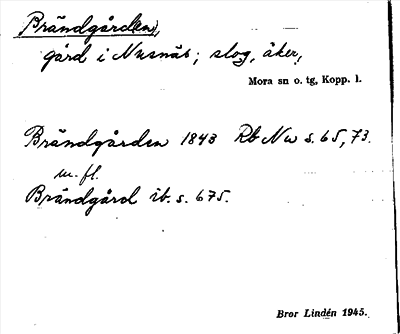 Brändgården,
gård i Nusnäs; slog, åker,
Mora sn o. tg, Kopp. l.
Brändgården 1843 Rb Nu s. 65, 73.
m. fl.
Brändgård ib. s. 675.
Bror Lindén 1945.